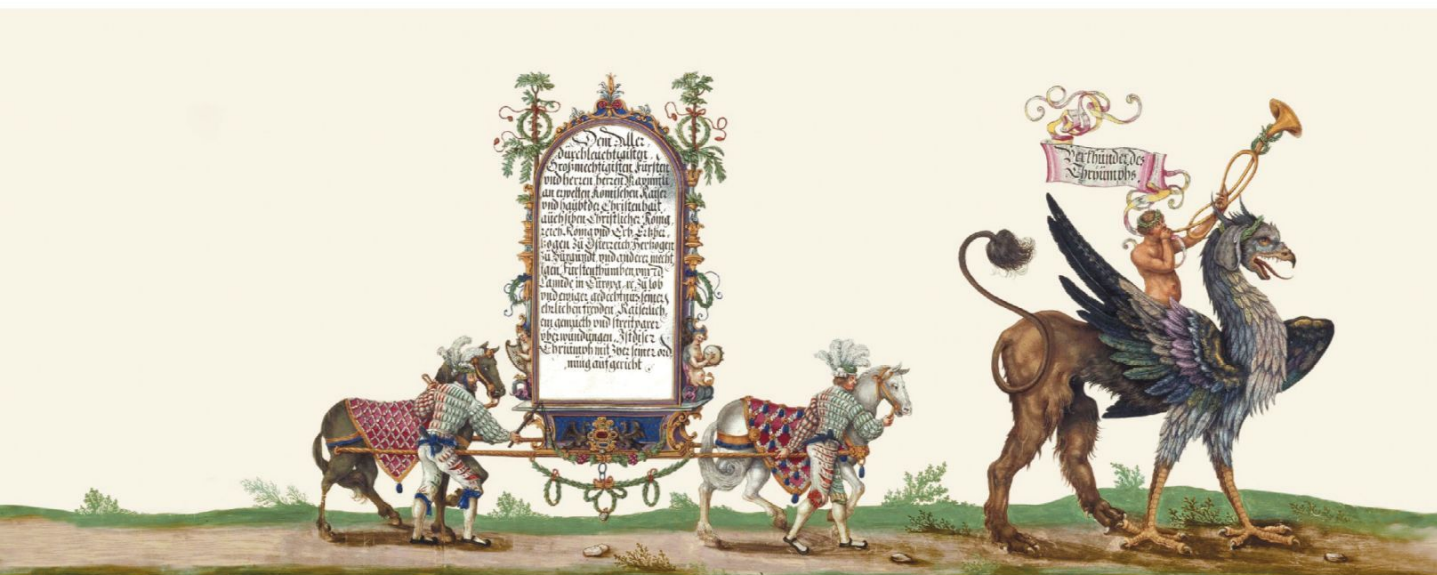 Dem Aller
durchleuchtigisten
Großmechtigisten Fürsten
vnd herren herren Maximili
an erwelten Römischen Kaiser
vnd haubt der Christenhait
auch siben Christlicher König
reich König vnd Erb Ertzher
zogen zu Osterreich Hertzogen
zu Burgundt vnd anderer mecht
igen Fürstenthumben vnnd
Lannde in Europa, ec. Zu lob
vnd ewiger gedechtnus seiner
ehrlichen freyden Kaiserlich
em gemueth vnd streitparer
vberwindungen Ist diser
Thriumph mit Zwer seiner ord
nung aufgericht
Verkhünder des
Thriumphs